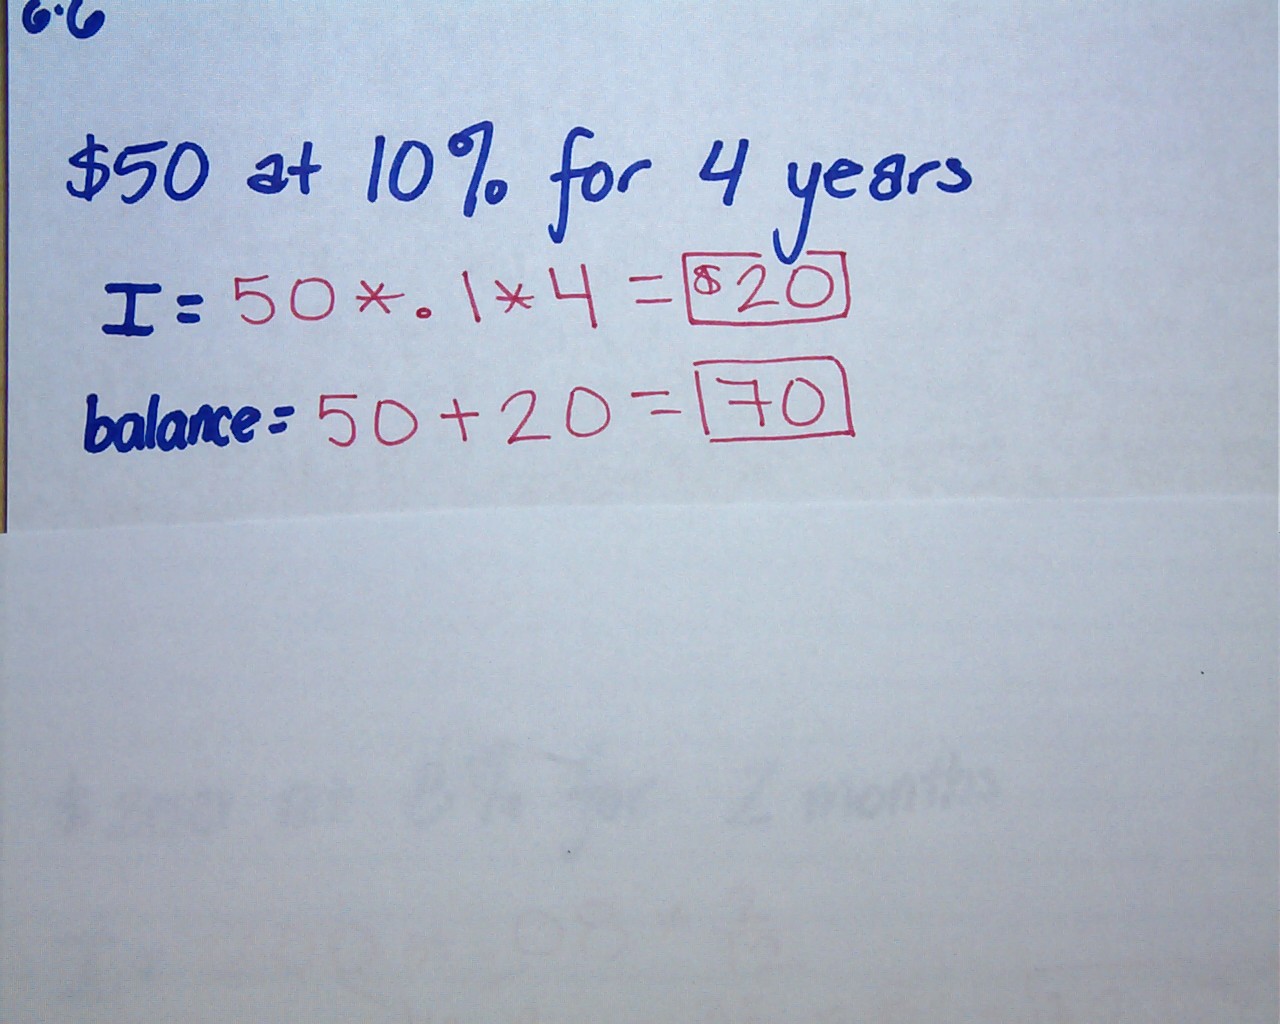 6.6
$50 at 10% for 4 years
I = 50 * .1 * 4 = $20
balance = 50 + 20 = 70
at 8% for 2 months